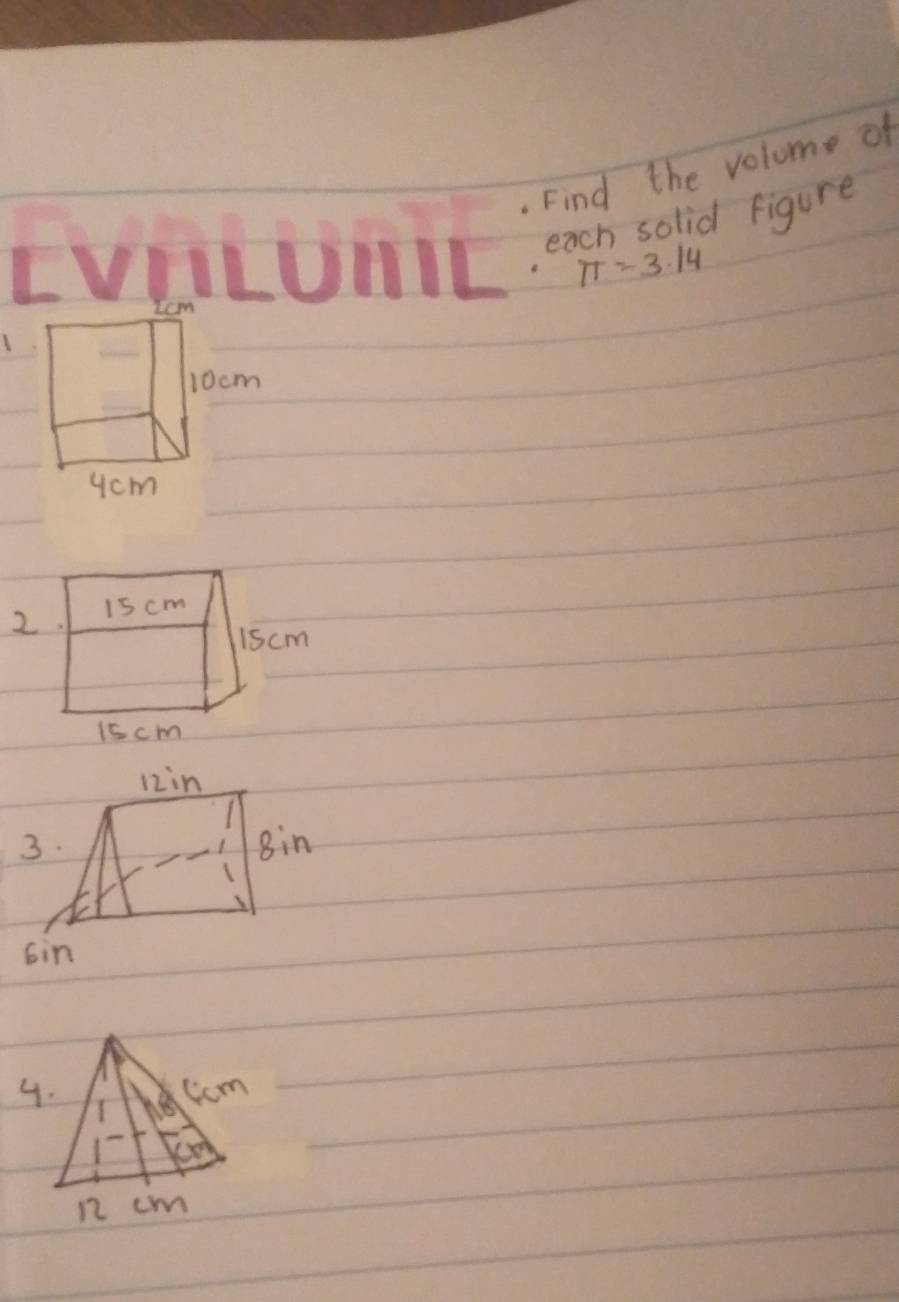 EVALUATE
. Find the volume of
each solid figure
. π = 3.14
1.
2cm
10cm
4cm
2.
15 cm
15cm
15cm
12in
3.
8in
6in
4.
cm
cm
12 cm